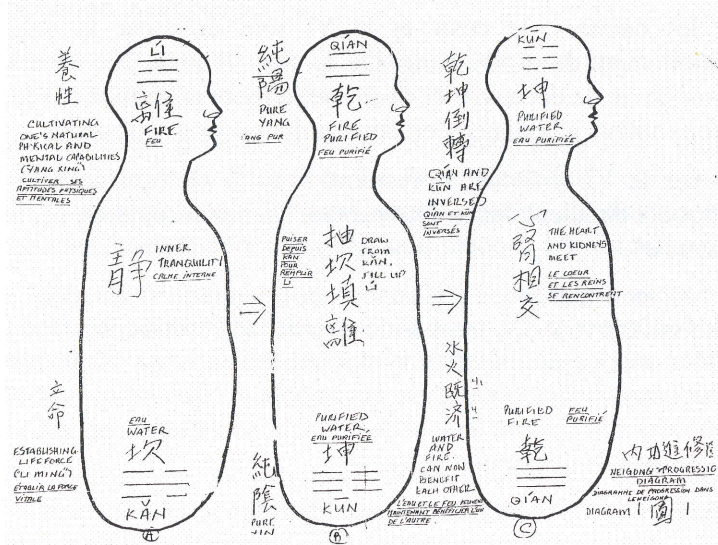 養性
CULTIVATING
ONE'S NATURAL
PHYSICAL AND
MENTAL CAPABILITIES
("YANG XING")
CULTIVER SES
APTITUDES PHYSIQUES
ET MENTALES
立命
ESTABLISHING
LIFEFORCE
("LI MING")
ÉTABLIR LA FORCE
VITALE
LÍ
離
FIRE
FEU
静
INNER
TRANQUILITY
CALME INTERNE
EAU
WATER
坎
KǍN
A
純陽
PURE
YANG
YANG PUR
純陰
PURE
YIN
QIÁN
乾
FIRE
PURIFIED
FEU PURIFIÉ
PUISER
DEPUIS
KAN
POUR
REMPLIR
LI
抽坎填離
DRAW
FROM
KǍN,
FILL UP
LÍ
PURIFIED
WATER
EAU PURIFIÉE
坤
KUN
B
乾坤倒轉
QIÁN AND
KŪN ARE
INVERSED
QIAN ET KUN
SONT
INVERSÉS
水火既済
WATER
AND
FIRE
CAN NOW
BENEFIT
EACH OTHER
L'EAU ET LE FEU PEUVENT
MAINTENANT BÉNÉFICIER L'UN
DE L'AUTRE
KŪN
坤
PURIFIED
WATER
EAU PURIFIÉE
心腎相交
THE HEART
AND KIDNEYS
MEET
LE COEUR
ET LES REINS
SE RENCONTRENT
PURIFIED
FIRE
FEU
PURIFIÉ
乾
QIÁN
C
内功進修
NEIGONG PROGRESSIO
DIAGRAM
DIAGRAMME DE PROGRESSION DANS
LE NEIGONG
DIAGRAM 1 圖 1